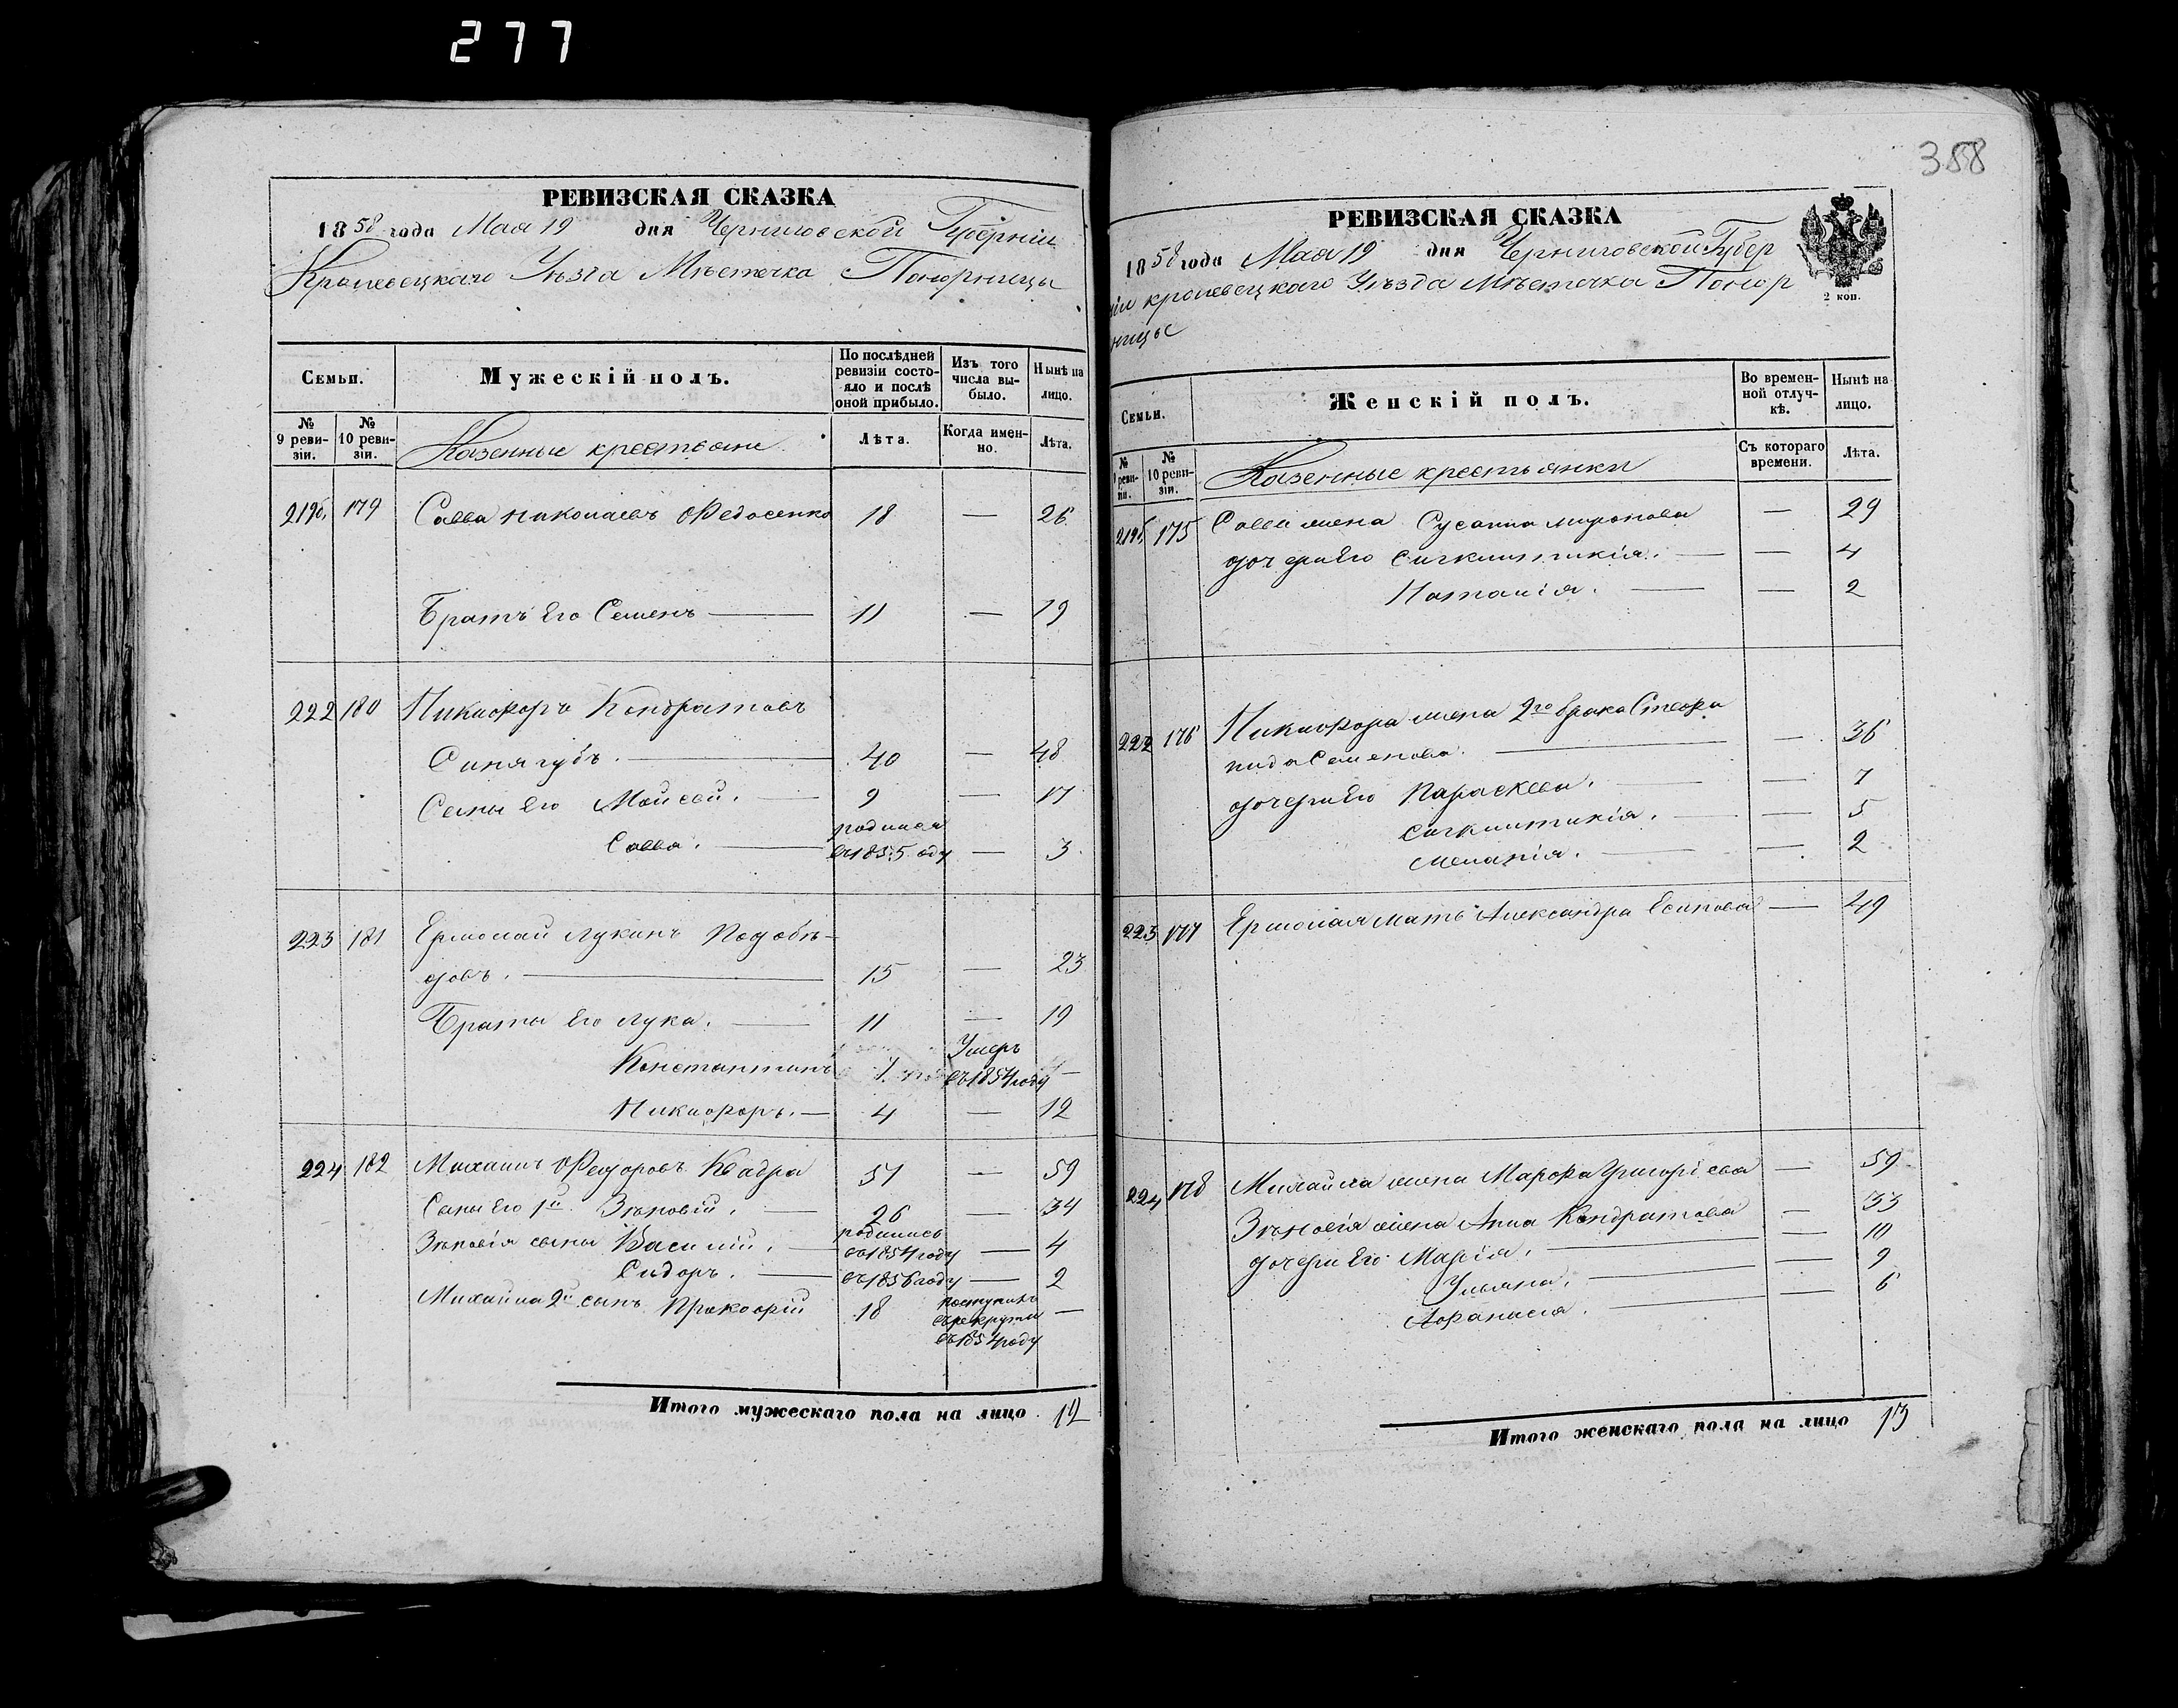 277
358
РЕВИЗСКАЯ СКАЗКА
1858 года Мая 19 дня Черниговской Губерніи
Кролевецкаго Уѣзда Мѣстечка Понорницы
Семьи.
Мужескій полъ.
По послѣдней ревизіи состояло и послѣ оной прибыло.
Изъ того числа выбыло.
Нынѣ на лицо.
№ 9 ревизіи.
№ 10 ревизіи.
Казенные крестьяне
Лѣта.
Когда именно.
Лѣта.
219б. 179 Савва Николаевъ Федосенко 18 — 26
Братъ Его Семенъ — 11 — 19
222 180 Никифоръ Кондратовъ
Синягубъ. — 40 — 48
Сыны Его Мойсей. — 9 — 17
Савва. — родился въ 1855 году — 3
223 181 Ермолай Лукинъ Подобѣ-
довъ. — 15 — 23
Браты Его Лука. — 11 — 19
Константинъ 7 Умеръ въ 1854 году —
Никифоръ. — 4 — 12
224 182 Михаилъ Федоровъ Квадра 51 — 59
Сыны Его 1й Зѣновій. — 26 — 34
Зѣновія сыны Василій. — родились въ 1854 году — 4
Сидоръ. — въ 1856 году — 2
Михаила 2й сынъ Прокофій 18 поступилъ въ рекруты въ 1854 году —
Итого мужескаго пола на лицо 12
РЕВИЗСКАЯ СКАЗКА
1858 года Мая 19 дня Черниговской Губер
ніи кролевецкаго Уѣзда Мѣстечка Понор
ницы
2 коп.
Семьи.
Женскій полъ.
Во временной отлучкѣ.
Нынѣ на лицо.
№ 9 ревизіи.
№ 10 ревизіи.
Казенные крестьянки
Съ котораго времени.
Лѣта.
219б. 175 Саввы жена Сусанна Миронова — 29
дочери Его Сигклитикія. — — 4
Наталія. — — 2
222 176 Никифора жена 2го брака Степа
нида Семенова. — — 36
дочери Его Параскева. — — 7
Сигклитикія. — — 5
Меланія. — — 2
223 177 Ермолая мать Александра Есипова — 49
224 178 Михайла жена Марфа Григоріева — 59
Зѣновія жена Анна Кондратова — 33
дочери Его Марія. — — 10
Ульяна. — — 9
Афанасія. — — 6
Итого женскаго пола на лицо 13